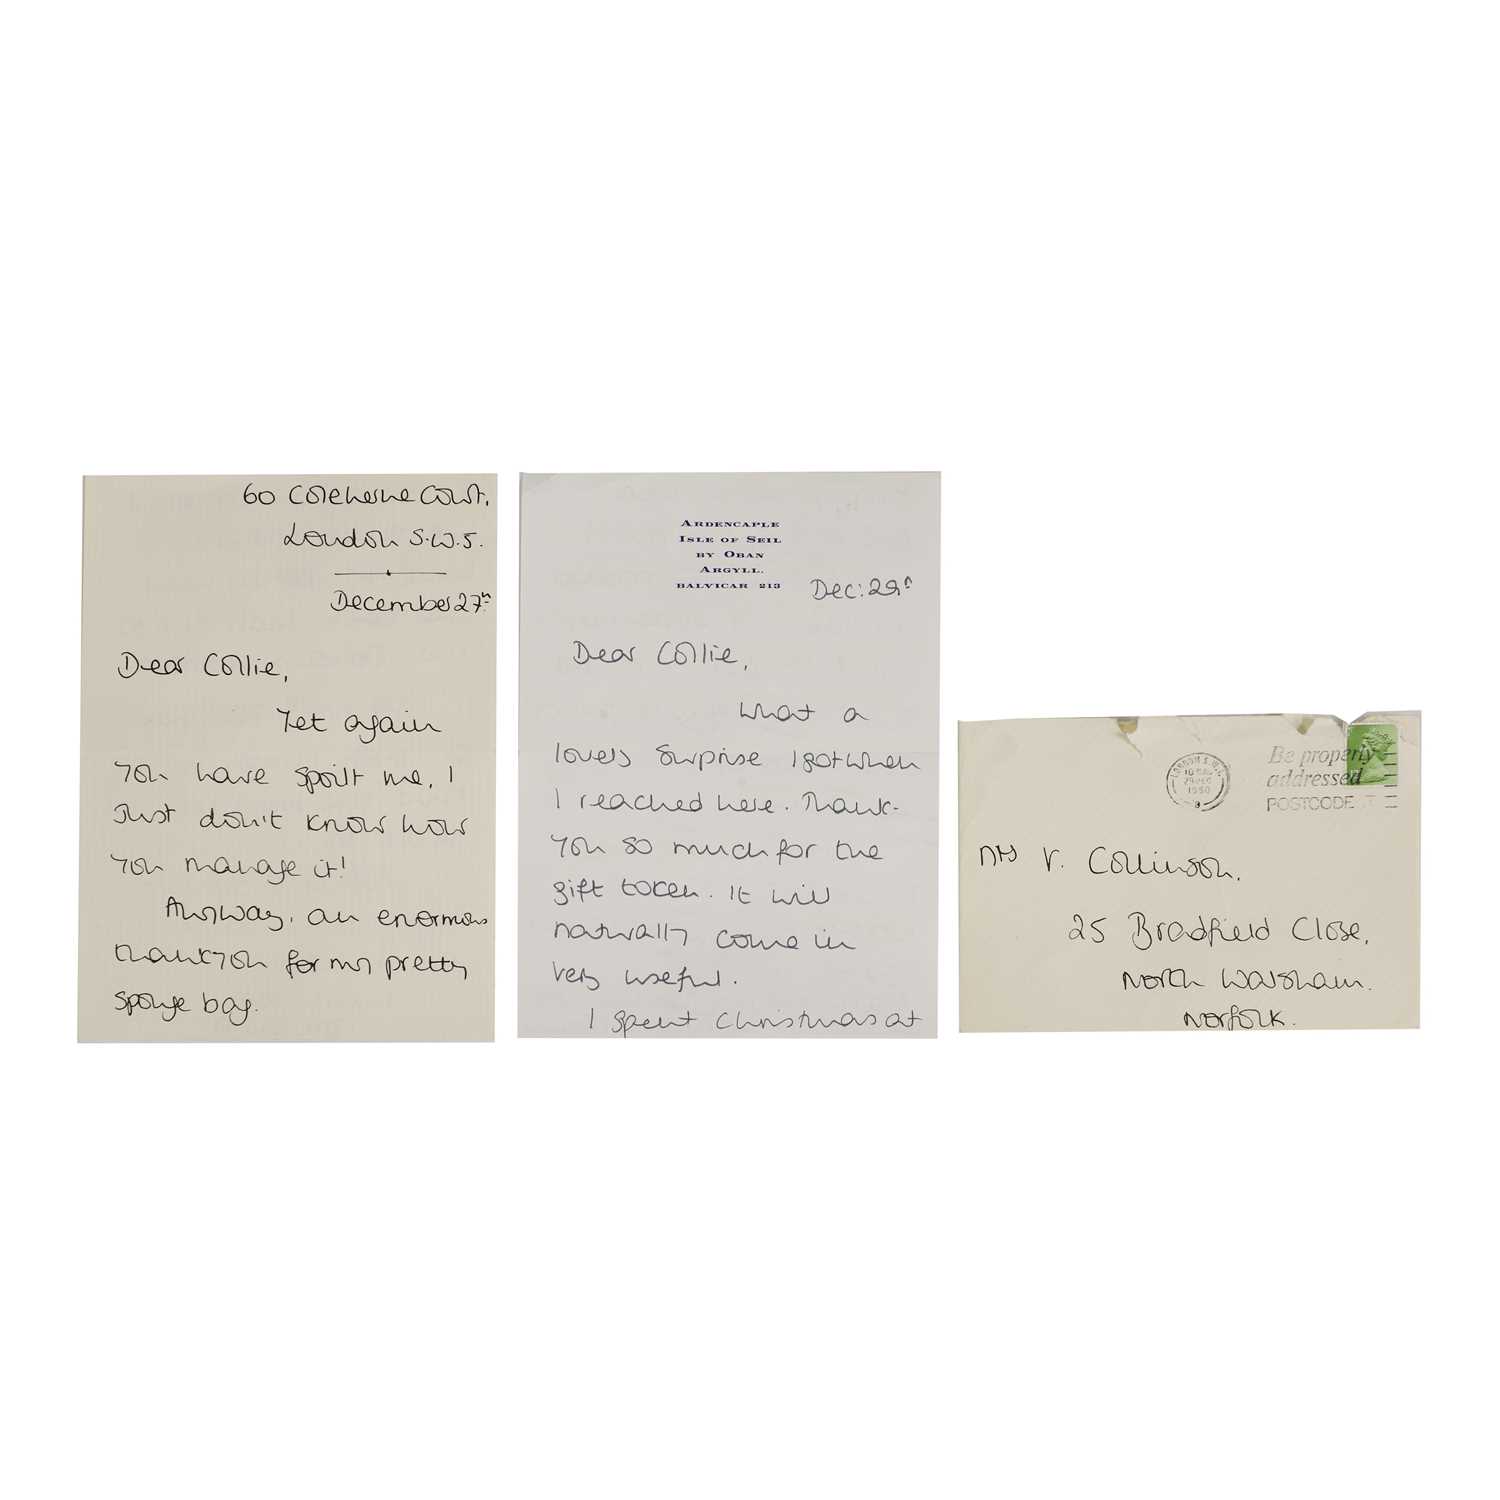 60 Coleherne Court,
London S.W.5.
December 27th
Dear Collie,
Yet again
you have spoilt me, I
Just don't know how
you manage it!
Anyway, an enormous
thankyou for my pretty
sponge bag.
ARDENCAPLE
ISLE OF SEIL
BY OBAN
ARGYLL.
BALVICAR 213
Dec: 29th
Dear Collie,
What a
lovely surprise I got when
I reached here. Thank-
you so much for the
gift token. It will
naturally come in
very useful.
I spent Christmas at
LONDON S.W.
29 DEC
1980
Be properly
addressed
POSTCODE IT
Mrs V. Collinson.
25 Bradfield Close,
North Walsham.
Norfolk.